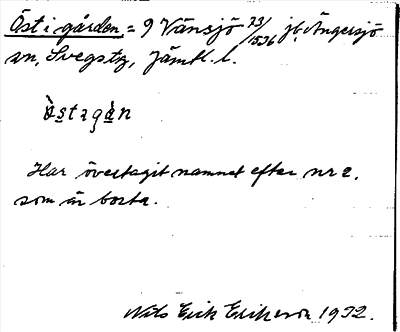 Öst i gården = 9 Vänsjö 73/1536 jb. Ängersjö
sn, Svegs tg, Jämtl. l.
östagån
Har övertagit namnet efter nr 2.
som är borta.
Nils Erik Eriksson 1932.